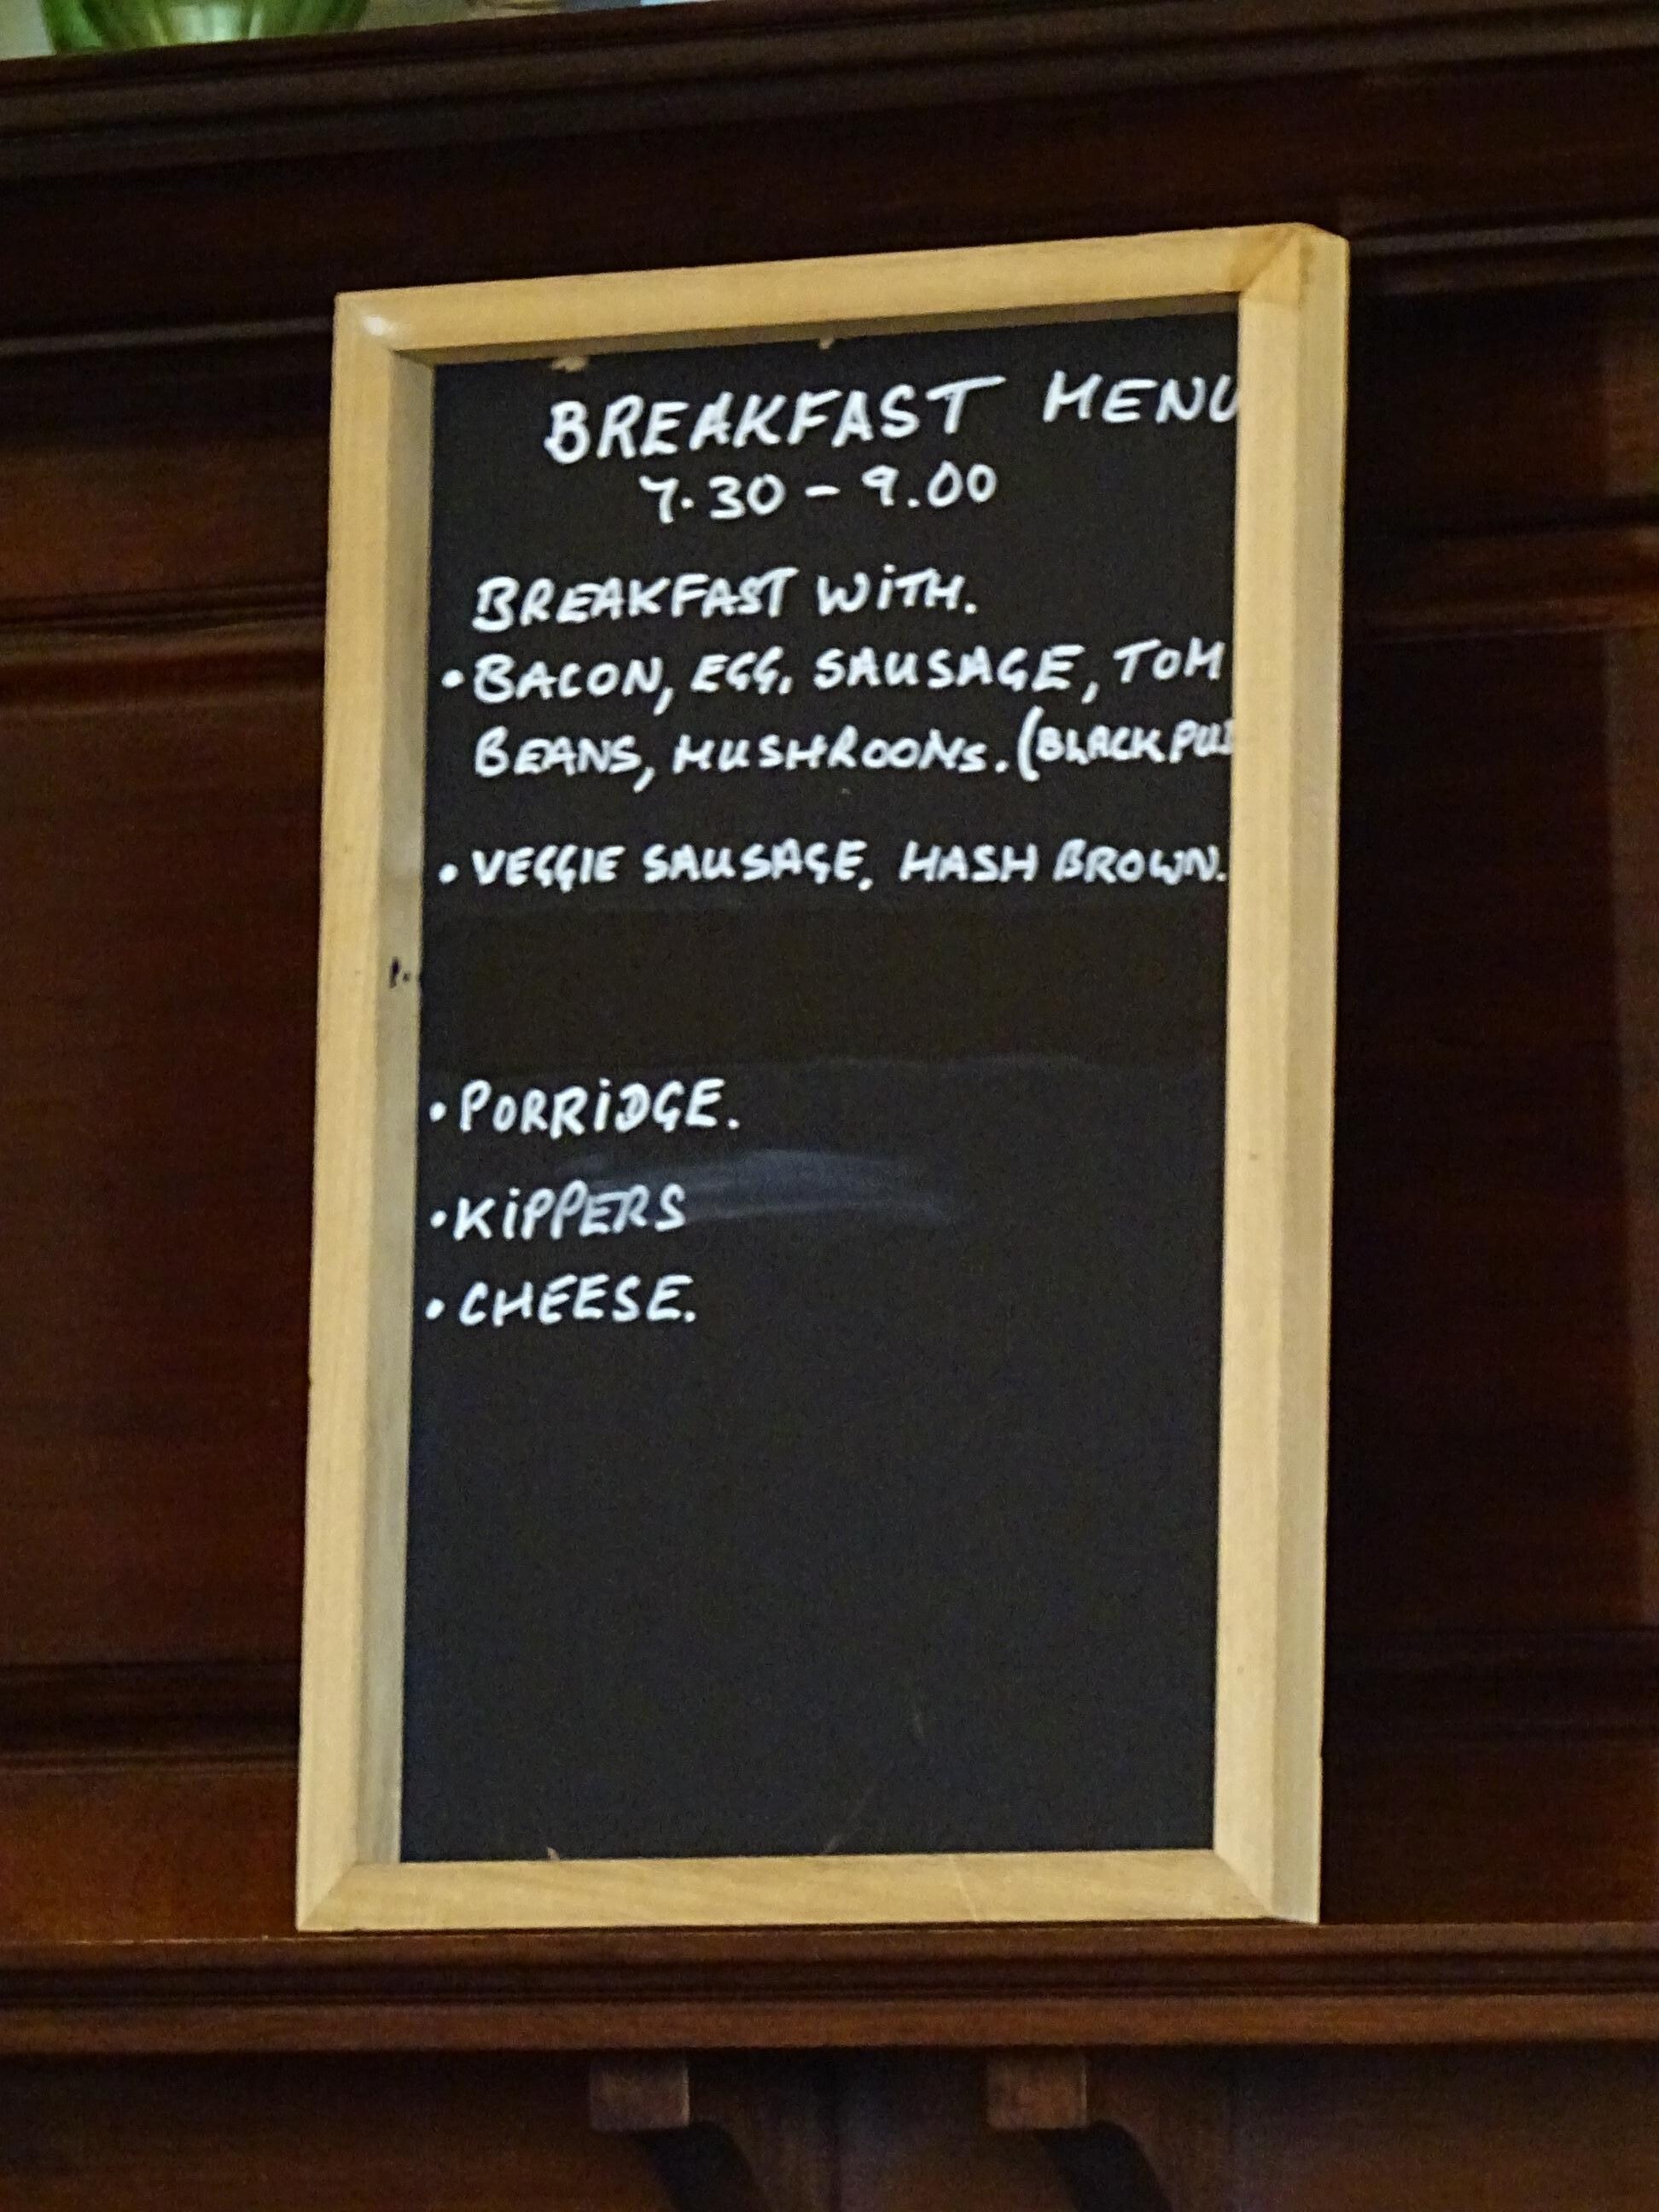 BREAKFAST MENU
7.30 - 9.00
BREAKFAST WITH.
• BACON, EGG, SAUSAGE, TOM
BEANS, MUSHROOMS. (BLACK PUD
• VEGGIE SAUSAGE, HASH BROWN.
• PORRIDGE.
• KIPPERS
• CHEESE.